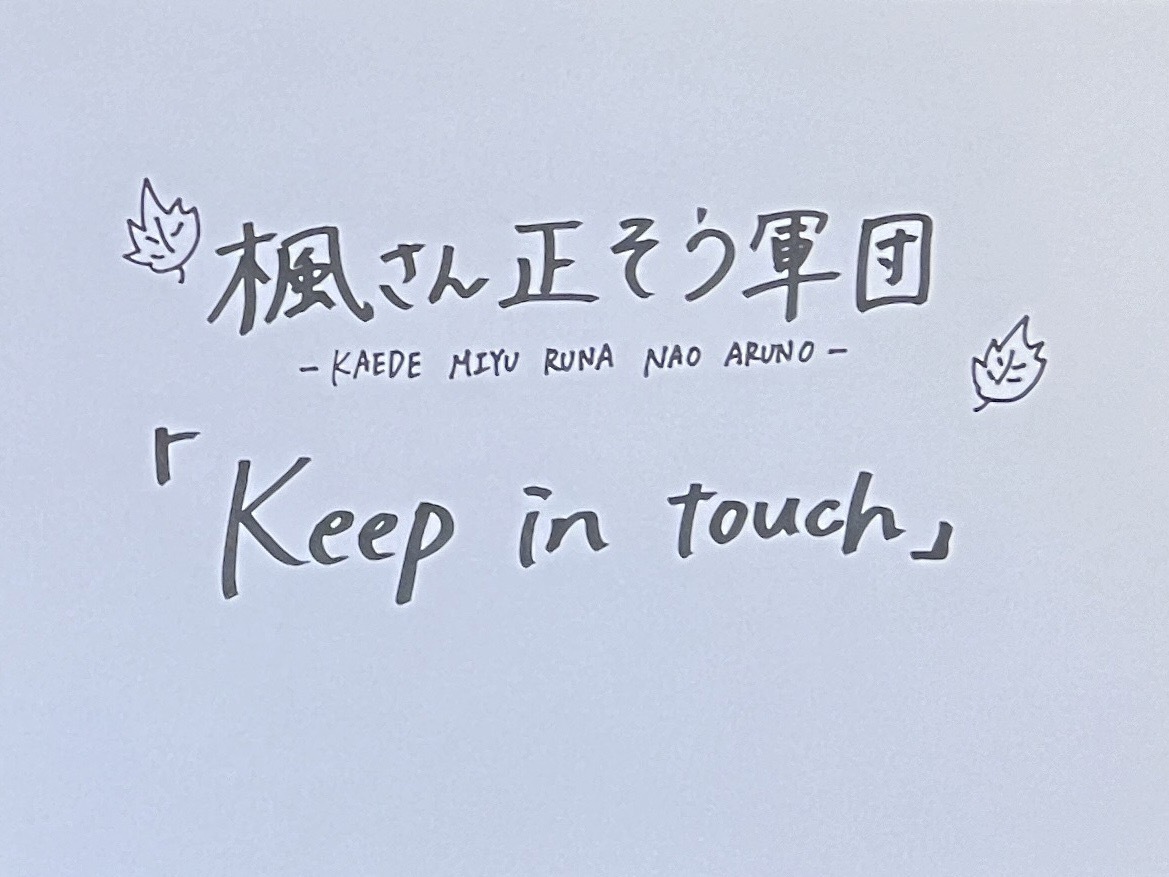 楓さん正そう軍団
- KAEDE MIYU RUNA NAO ARUNO -
「Keep in touch」